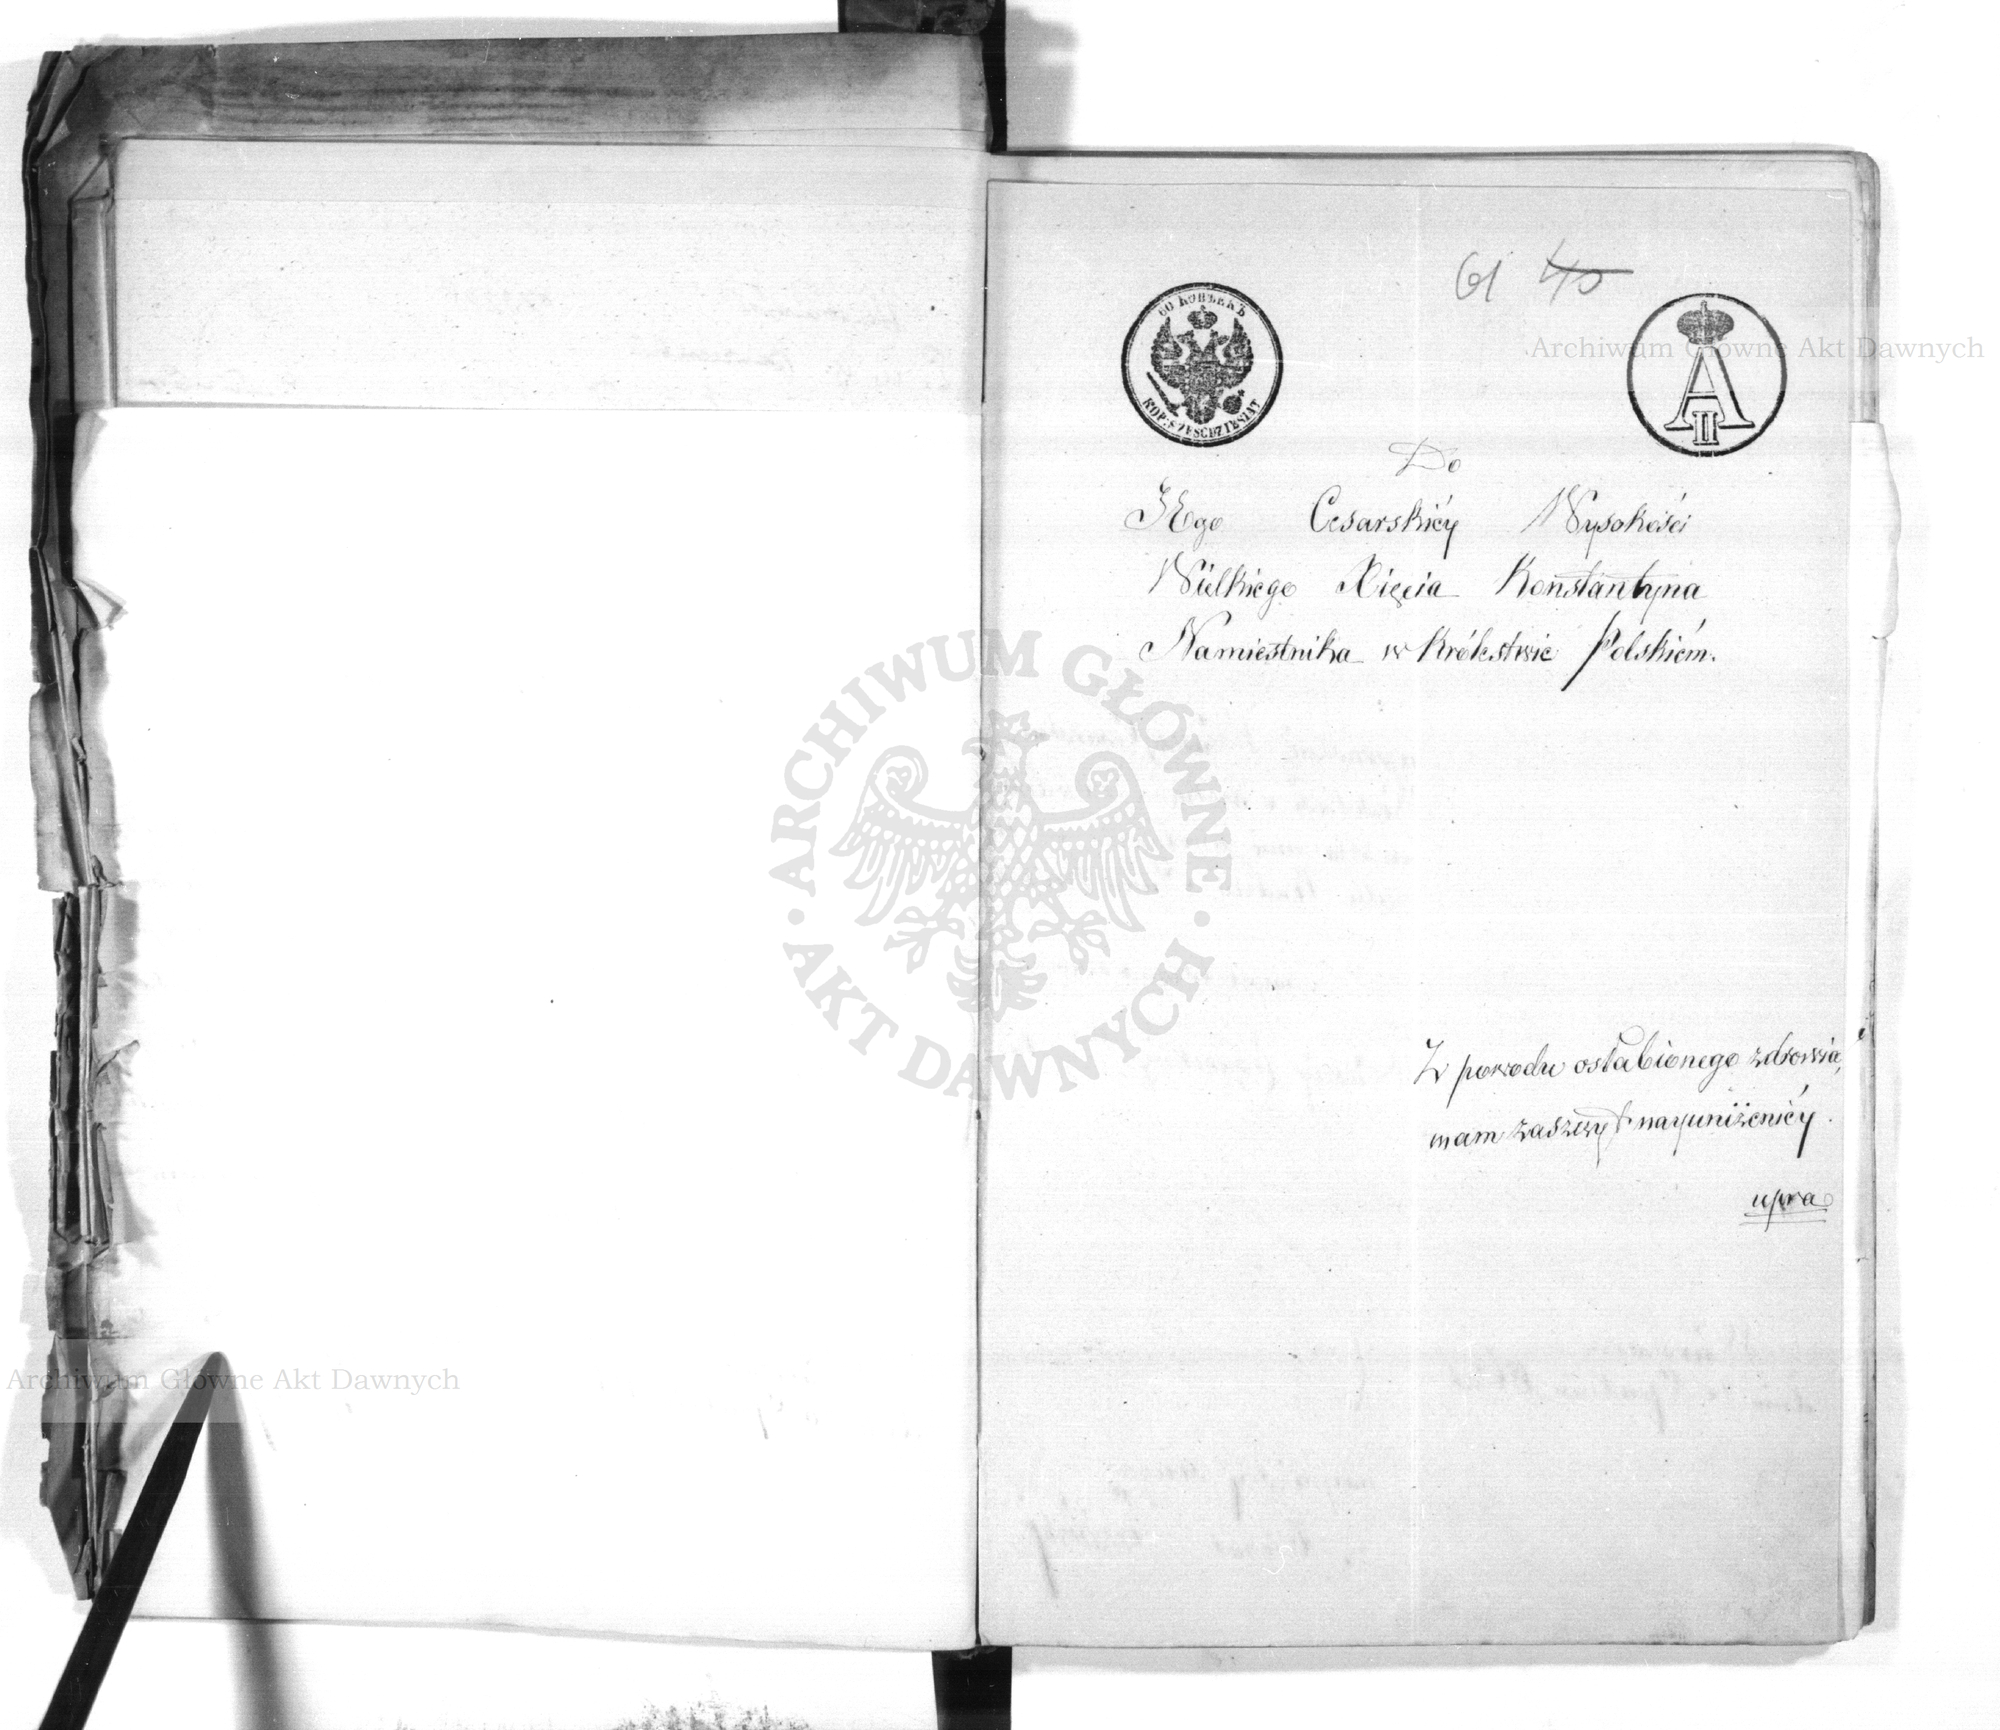 61 40
60 КОПѢЕКЪ
KOP. SZESCDZIESIĄT
A II
Do
JEgo Cesarskiéy Wysokości
Wielkiego Xięcia Konstantyna
Namiestnika w Królestwie Polskiém.
Z powodu osłabionego zdrowia,
mam zaszczyt nayuniżeniéy
upra
Archiwum Główne Akt Dawnych
ARCHIWUM GŁÓWNE
AKT DAWNYCH
Archiwum Główne Akt Dawnych